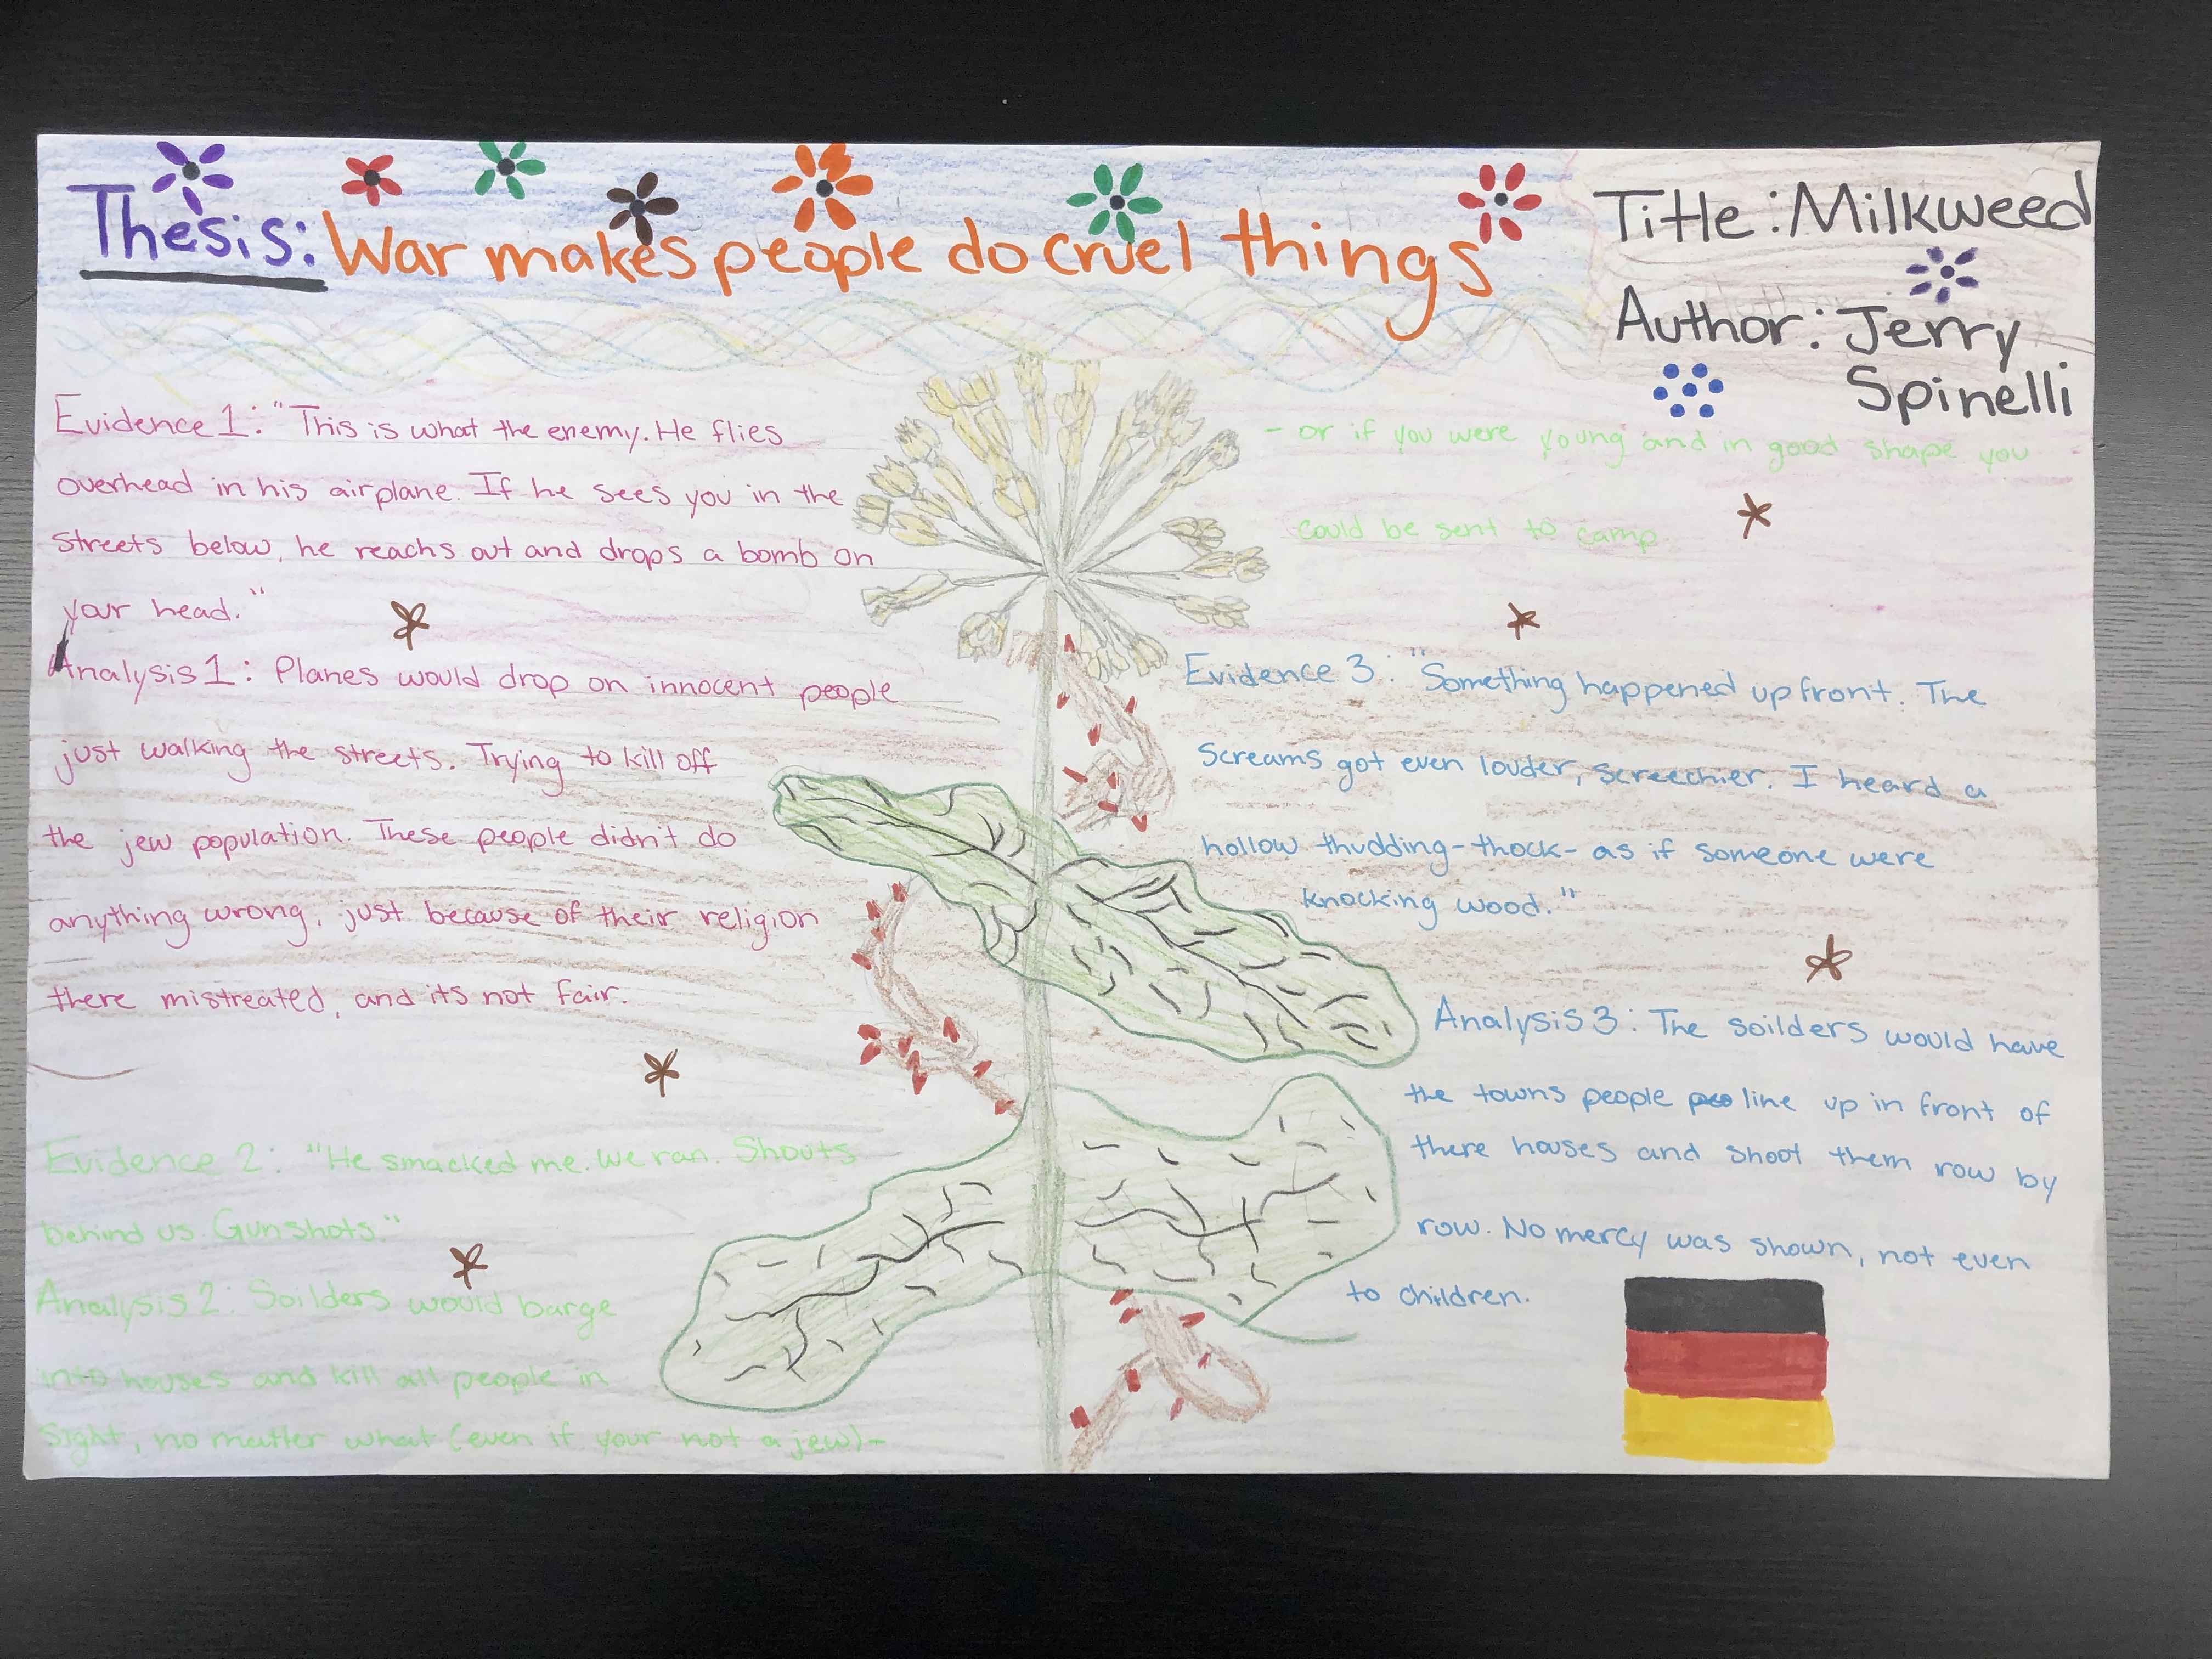 Thesis: War makes people do cruel things
Title: Milkweed
Author: Jerry
Spinelli
Evidence 1: "This is what the enemy. He flies
overhead in his airplane. If he sees you in the
streets below, he reachs out and drops a bomb on
your head."
Analysis 1: Planes would drop on innocent people
just walking the streets. Trying to kill off
the jew population. These people didn't do
anything wrong, just because of their religion
there mistreated, and its not fair.
Evidence 2: "He smacked me. We ran. Shouts
behind us. Gunshots."
Analysis 2: Soilders would barge
into houses and kill all people in
sight, no matter what (even if your not a jew) -
- or if you were young and in good shape you
could be sent to camp
Evidence 3: "Something happened up front. The
screams got even louder, screechier. I heard a
hollow thudding-thock- as if someone were
knocking wood."
Analysis 3: The soilders would have
the towns people line up in front of
there houses and shoot them row by
row. No mercy was shown, not even
to children.